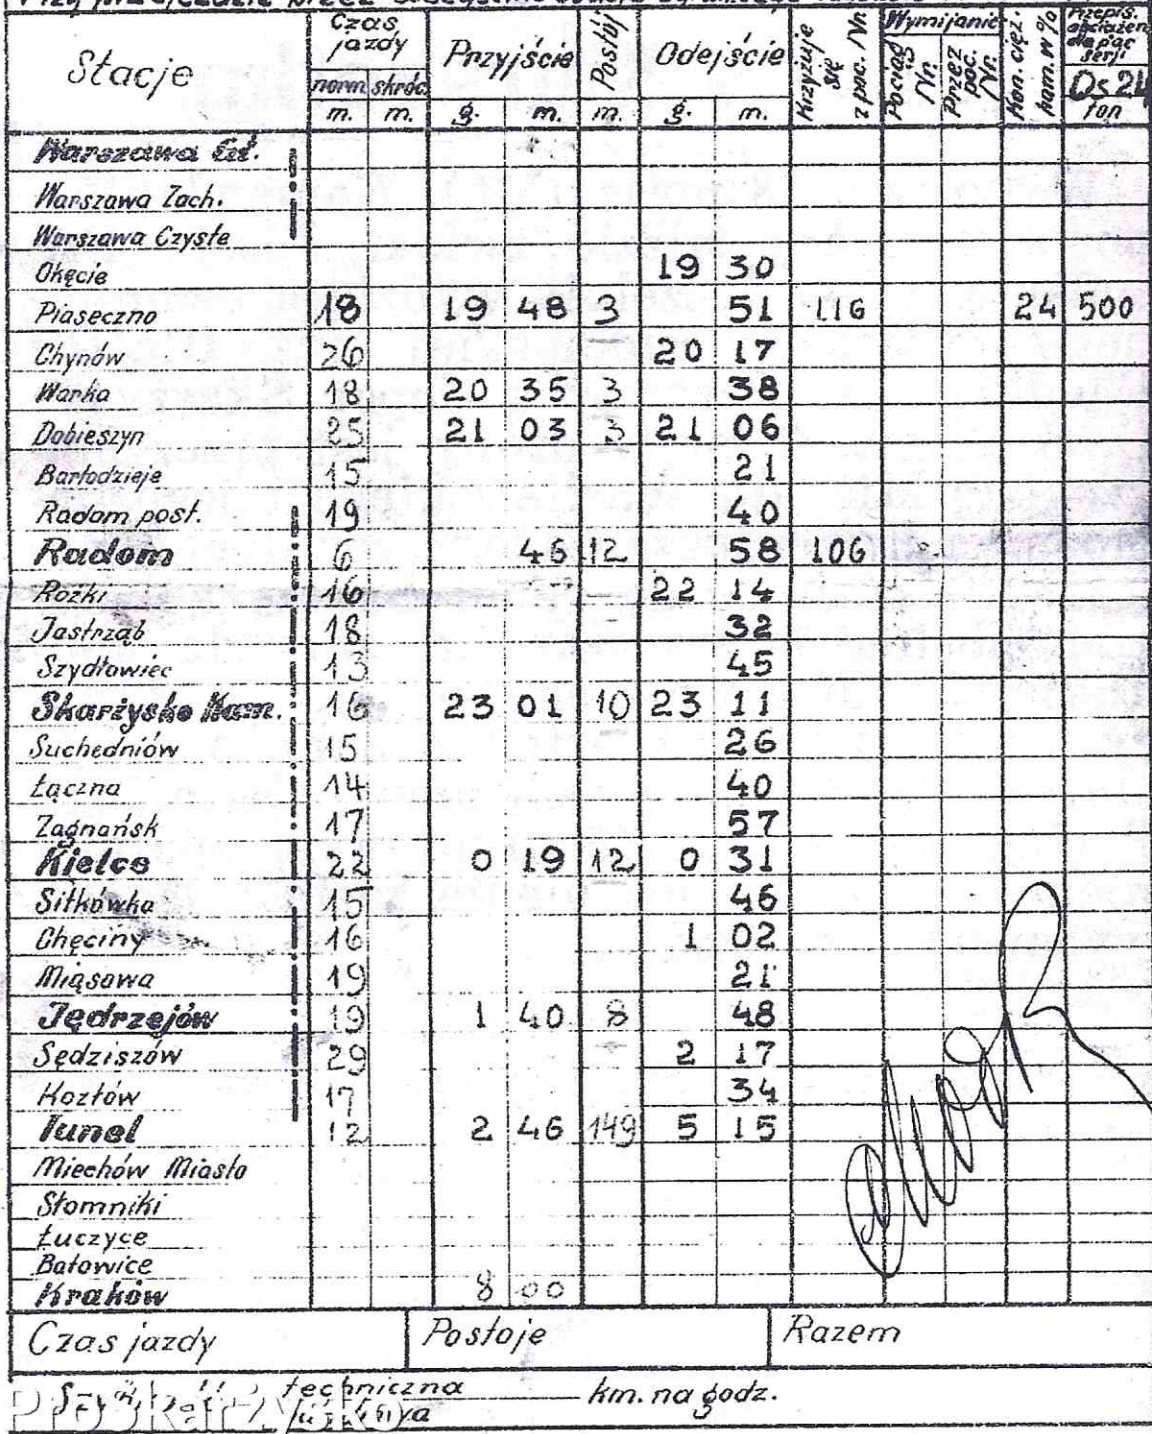 Stacje Czas jazdy Przyjście Postój Odejście Krzyżuje się z poc. Nr. Wymijanie Pociąg Nr. Przez poc. Nr. Kon. cięż. ham. w % Przepis. obciążen. dla par. serji
norm. skróc. Os 24
m. m. g. m. m. g. m. ton
Warszawa Gł.
Warszawa Zach.
Warszawa Czyste
Okęcie 19 30
Piaseczno 18 19 48 3 51 116 24 500
Chynów 26 20 17
Warka 18 20 35 3 38
Dobieszyn 25 21 03 3 21 06
Bartodzieje 15 21
Radom post. 19 40
Radom 6 46 12 58 106
Rożki 16 22 14
Jastrząb 18 32
Szydłowiec 13 45
Skarżysko Kam. 16 23 01 10 23 11
Suchedniów 15 26
Łączna 14 40
Zagnańsk 17 57
Kielce 22 0 19 12 0 31
Sitkówka 15 46
Chęciny 16 1 02
Miąsowa 19 21
Jędrzejów 19 1 40 8 48
Sędziszów 29 2 17
Kozłów 17 34
Tunel 12 2 46 149 5 15
Miechów Miasto
Słomniki
Łuczyce
Batowice
Kraków 8 00
Czas jazdy Postoje Razem
techniczna km. na godz.